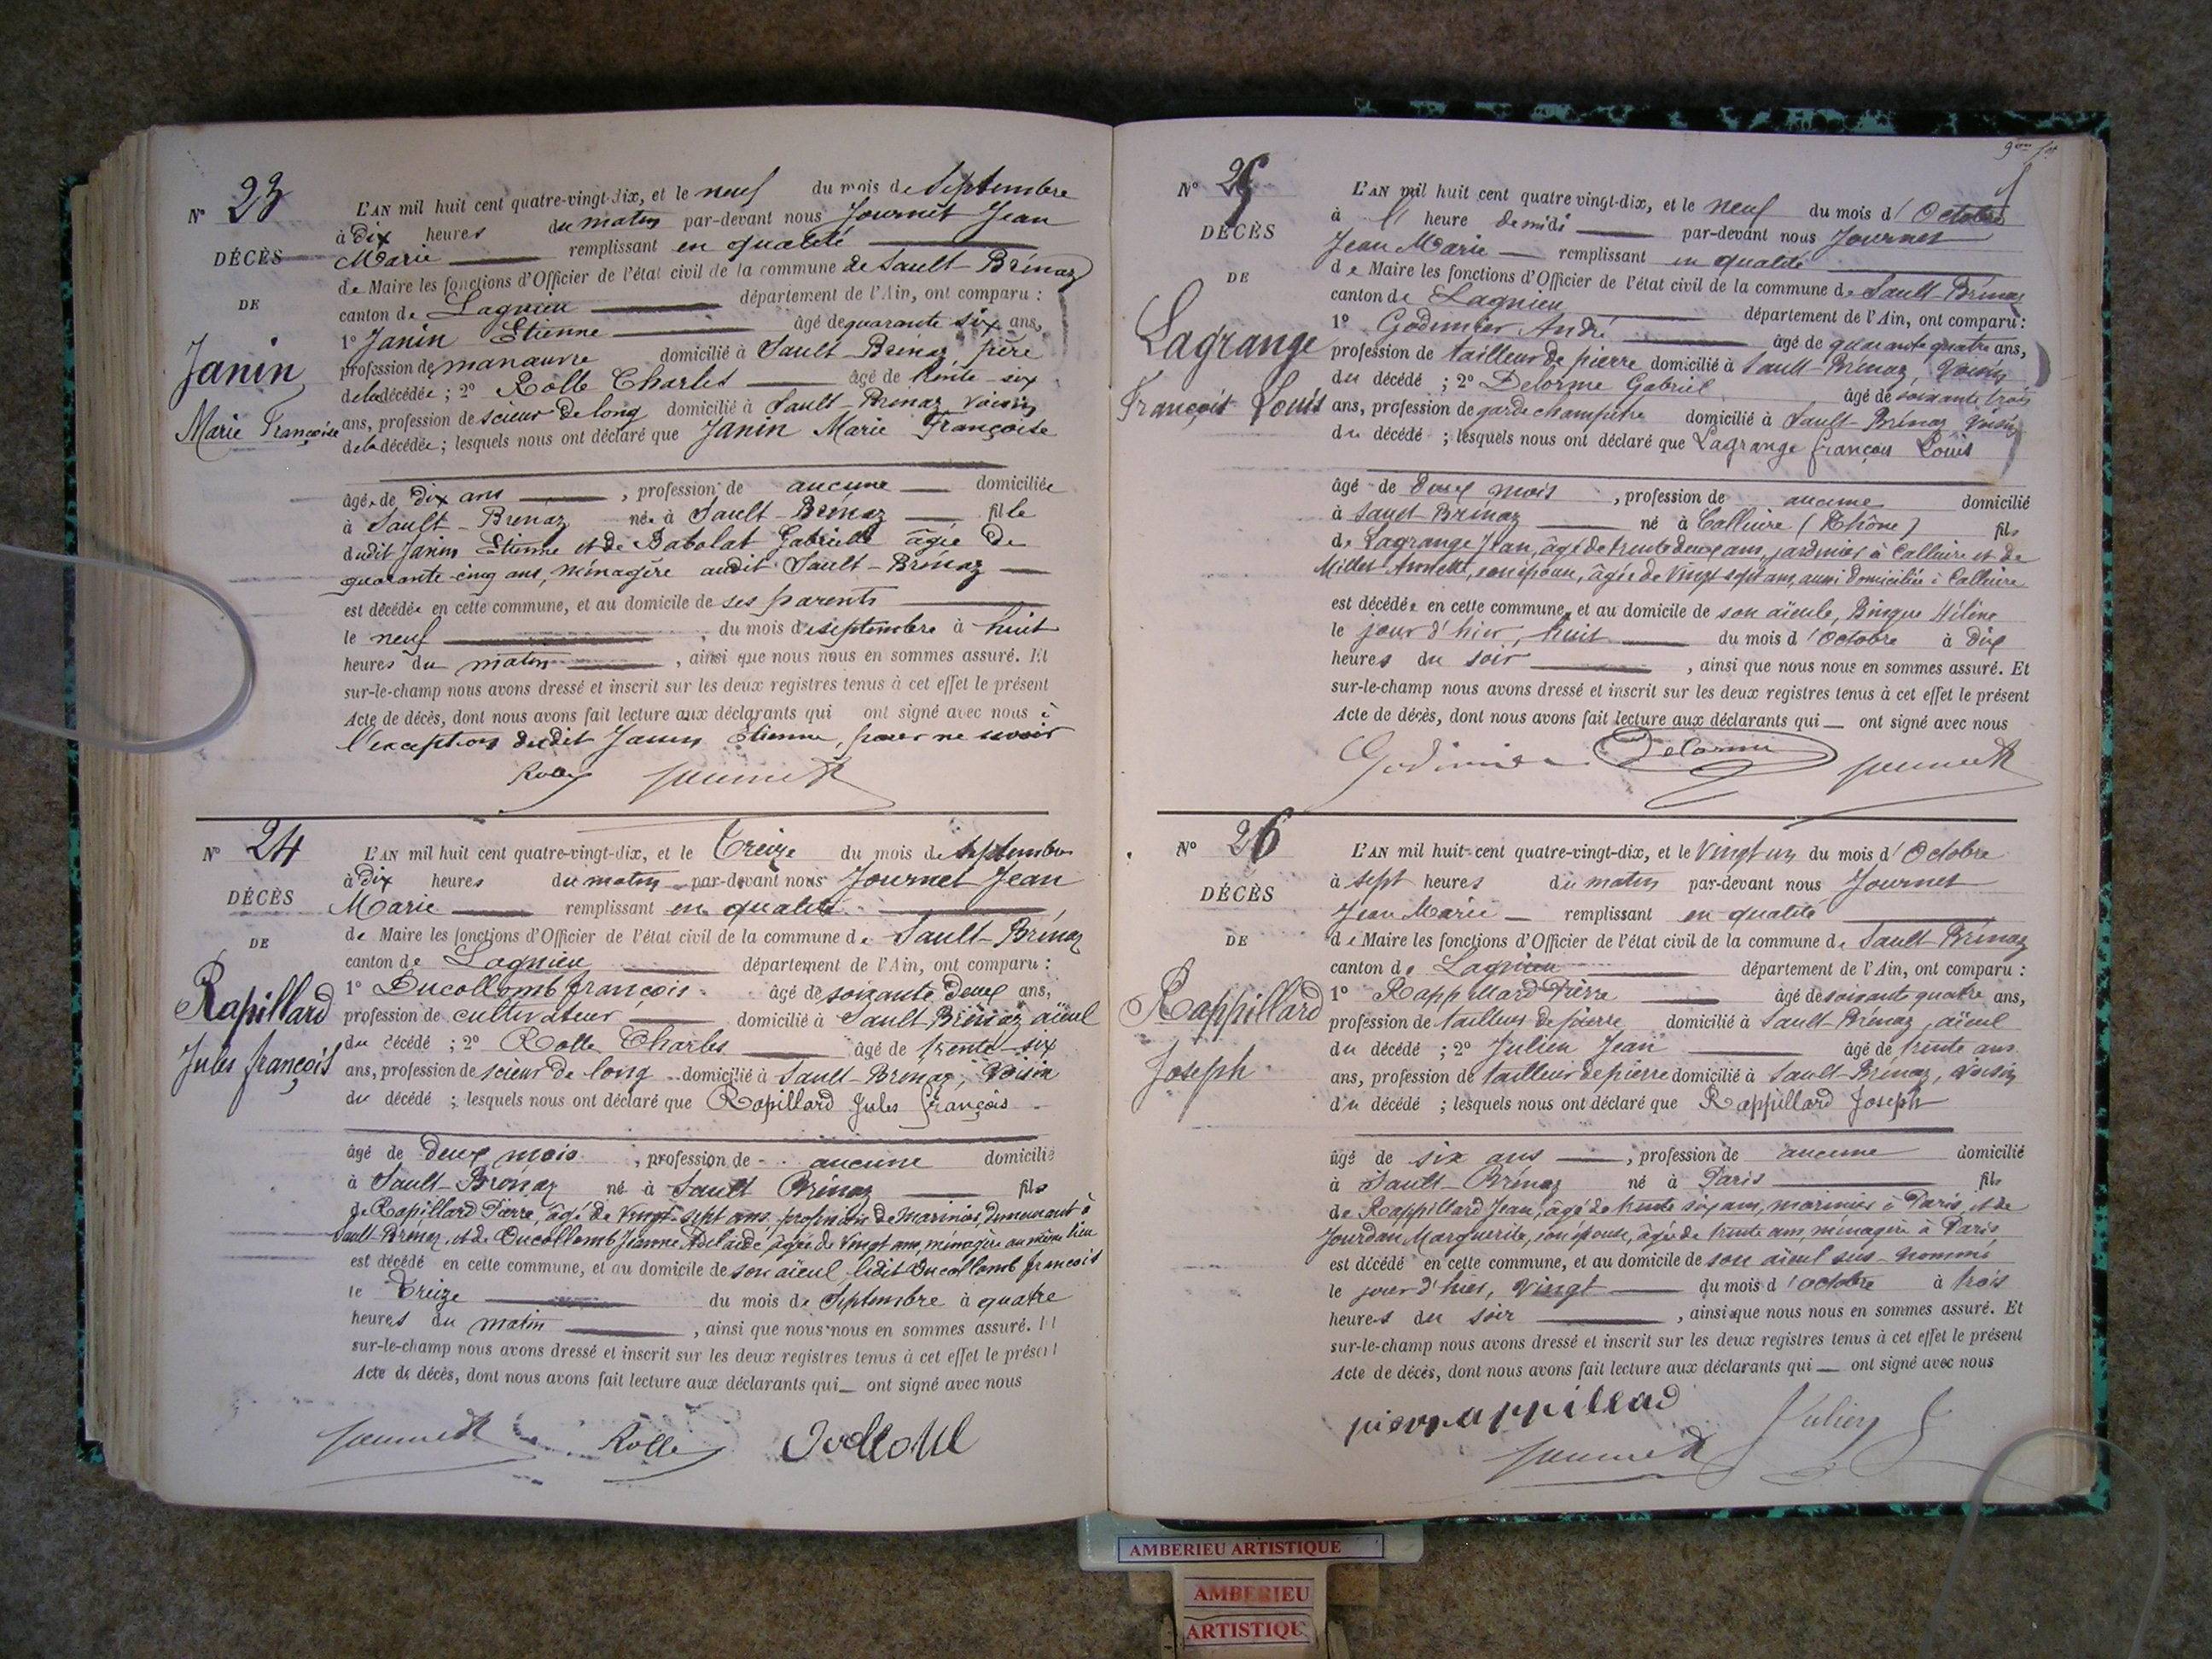 N° 23
DÉCÈS
DE
Janin
Marie Françoise
L'AN mil huit cent quatre-vingt-dix, et le neuf du mois de Septembre
à Dix heures du matin par-devant nous Journet Jean
Marie remplissant en qualité
de Maire les fonctions d'Officier de l'état civil de la commune de Sault-Brénaz
canton de Lagnieu département de l'Ain, ont comparu :
1° Janin Etienne âgé de quarante six ans,
profession de manœuvre domicilié à Sault-Brénaz, père
de la décédée ; 2° Rolle Charles âgé de trente-six
ans, profession de scieur de long domicilié à Sault-Brénaz voisin
de la décédée ; lesquels nous ont déclaré que Janin Marie Françoise
âgée de dix ans, profession de aucune domiciliée
à Sault-Brénaz née à Sault-Brénaz fille
dudit Janin Etienne et de Babolat Gabrielle âgée de
quarante-cinq ans, ménagère audit Sault-Brénaz
est décédée en cette commune, et au domicile de ses parents
le neuf du mois de septembre à huit
heures du matin, ainsi que nous nous en sommes assuré. Et
sur-le-champ nous avons dressé et inscrit sur les deux registres tenus à cet effet le présent
Acte de décès, dont nous avons fait lecture aux déclarants qui ont signé avec nous à
l'exception dudit Janin Etienne, pour ne savoir
Rolle Journet
N° 24
DÉCÈS
DE
Rapillard
Jules françois
L'AN mil huit cent quatre-vingt-dix, et le Treize du mois de Septembre
à Dix heures du matin par-devant nous Journet Jean
Marie remplissant en qualité
de Maire les fonctions d'Officier de l'état civil de la commune de Sault-Brénaz
canton de Lagnieu département de l'Ain, ont comparu :
1° Ducollomb françois âgé de soixante deux ans,
profession de cultivateur domicilié à Sault Brénaz aïeul
du décédé ; 2° Rolle Charles âgé de trente-six
ans, profession de scieur de long domicilié à Sault-Brénaz, Voisin
du décédé ; lesquels nous ont déclaré que Rapillard Jules françois
âgé de deux mois, profession de aucune domicilié
à Sault-Brénaz né à Sault Brénaz fils
de Rapillard Pierre, âgé de Vingt-sept ans, profession de Marinier, demeurant à
Sault-Brénaz, et de Ducollomb Jeanne Adelaïde âgée de Vingt ans, ménagère au même lieu
est décédé en cette commune, et au domicile de son aïeul ledit Ducollomb françois
le Treize du mois de Septembre à quatre
heures du matin, ainsi que nous nous en sommes assuré. Et
sur-le-champ nous avons dressé et inscrit sur les deux registres tenus à cet effet le présent
Acte de décès, dont nous avons fait lecture aux déclarants qui ont signé avec nous
Journet Rolle
N° 25
DÉCÈS
DE
Lagrange
François Louis
L'AN mil huit cent quatre vingt-dix, et le neuf du mois d'Octobre
à heure de midi par-devant nous Journet
Jean Marie remplissant en qualité
de Maire les fonctions d'Officier de l'état civil de la commune de Sault-Brénaz
canton de Lagnieu département de l'Ain, ont comparu :
1° Godimier André âgé de quarante quatre ans,
profession de tailleur de pierre domicilié à Sault-Brénaz, Voisin
du décédé ; 2° Delorme Gabriel âgé de soixante trois
ans, profession de garde champêtre domicilié à Sault-Brénaz, Voisin
du décédé ; lesquels nous ont déclaré que Lagrange françois Louis
âgé de deux mois, profession de aucune domicilié
à Sault-Brénaz né à Calluire (Rhône) fils
de Lagrange Jean, âgé de trente deux ans, jardinier à Calluire et de
Millet Annette, son épouse, âgée de Vingt sept ans, aussi domiciliée à Calluire
est décédée en cette commune, et au domicile de son aïeule, Hélène
le jour d'hier, huit du mois d'Octobre à dix
heures du soir, ainsi que nous nous en sommes assuré. Et
sur-le-champ nous avons dressé et inscrit sur les deux registres tenus à cet effet le présent
Acte de décès, dont nous avons fait lecture aux déclarants qui ont signé avec nous
Godimier Delorme Journet
N° 26
DÉCÈS
DE
Rappillard
Joseph
L'AN mil huit cent quatre-vingt-dix, et le Vingt un du mois d'Octobre
à sept heures du matin par-devant nous Journet
Jean Marie remplissant en qualité
de Maire les fonctions d'Officier de l'état civil de la commune de Sault-Brénaz
canton de Lagnieu département de l'Ain, ont comparu :
1° Rappillard Pierre âgé de soixante quatre ans,
profession de tailleur de pierre domicilié à Sault-Brénaz, aïeul
du décédé ; 2° Julien Jean âgé de trente ans
ans, profession de tailleur de pierre domicilié à Sault-Brénaz, Voisin
du décédé ; lesquels nous ont déclaré que Rappillard Joseph
âgé de six ans, profession de aucune domicilié
à Sault-Brénaz né à Paris fils
de Rappillard Jean, âgé de trente six ans, marinier à Paris, et de
Jourdan Marguerite, son épouse, âgée de trente ans ménagère à Paris
est décédé en cette commune, et au domicile de son aïeul sus-nommé
le jour d'hier, Vingt du mois d'Octobre à trois
heures du soir, ainsi que nous nous en sommes assuré. Et
sur-le-champ nous avons dressé et inscrit sur les deux registres tenus à cet effet le présent
Acte de décès, dont nous avons fait lecture aux déclarants qui ont signé avec nous
Julien
Journet
AMBERIEU ARTISTIQUE
AMBERIEU
ARTISTIQU